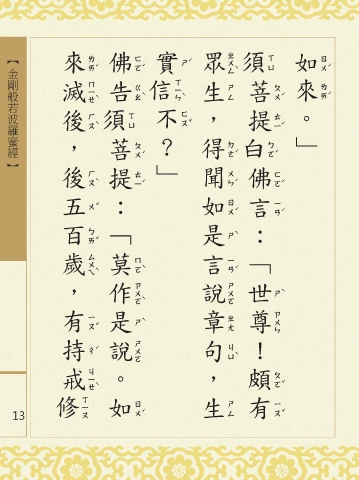 如來。」
須菩提白佛言：「世尊！頗有
眾生，得聞如是言說章句，生
實信不？」
佛告須菩提：「莫作是說。如
來滅後，後五百歲，有持戒修
【金剛般若波羅蜜經】
13